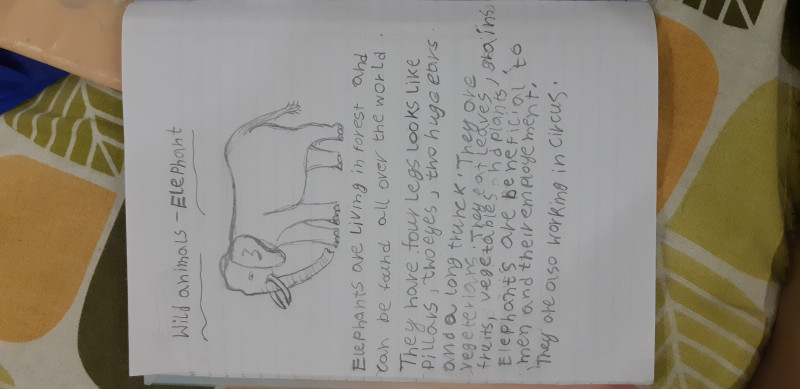 Wild animals - Elephant
Elephants are living in forest and
can be found all over the world.
They have four legs looks like
Pillars, two eyes, two huge ears.
and a long trunck. They are
vegeterians. They eat leaves,
fruits, vegetables and plants, grains,
Elephants are beneficial to
men and their employement.
They are also working in circus.